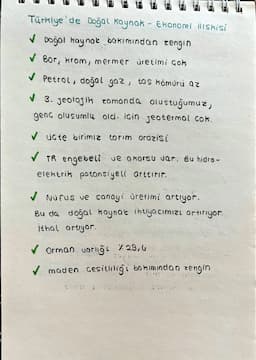 Türkiye'de Doğal Kaynak - Ekonomi İlişkisi
✓ Doğal kaynak bakımından zengin
✓ Bor, krom, mermer üretimi çok
✓ Petrol, doğal gaz, taş kömürü az
✓ 3. jeolojik zamanda oluştuğumuz,
genç oluşumlu old. için jeotermal çok.
✓ Üçte birimiz tarım arazisi
✓ TR engebeli ve akarsu var. Bu hidro-
elektrik potansiyeli arttırır.
✓ Nüfus ve sanayi üretimi artıyor.
Bu da doğal kaynak ihtiyacımızı artırıyor.
İthal artıyor.
✓ Orman varlığı %29,4
✓ maden çeşitliliği bakımından zengin